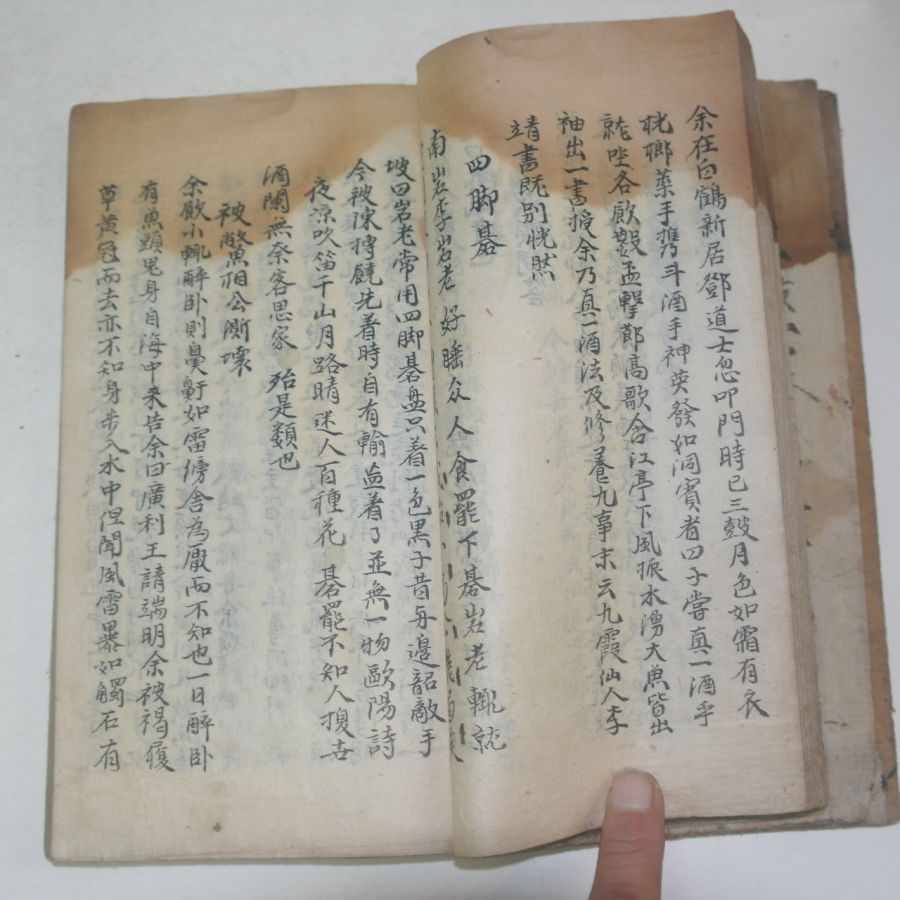 余在白鶴新居鄧道士忽叩門時已三鼓月色如霜有衣
桄榔葉手攜斗酒手神英發如洞賓者曰子嘗真一酒乎
就坐各飲數盃擊節高歌合江亭下風振水湧大魚皆出
袖出一書授余乃真一酒法及修養九事末云九霞仙人李
靖書既別恍然
四脚碁
南岩李岩老好睡众人食罷下碁岩老輒就
坡曰岩老常用四脚碁盤只着一色黑子昔与邊韶敵手
今被陳摶饒先着時自有輸益着了並無一物歐陽詩
夜凉吹笛千山月路暗迷人百種花 碁罷不知人換世
酒闌無奈客思家 殆是類也
被鱉相公廝壞
余飲小輒醉卧則鼻鼾如雷傍舍為厭而不知也一日醉卧
有魚頭鬼身自海中来告余曰廣利王請端明余被褐履
草黃冠而去亦不知身步入水中但聞風雷暴如觸石有